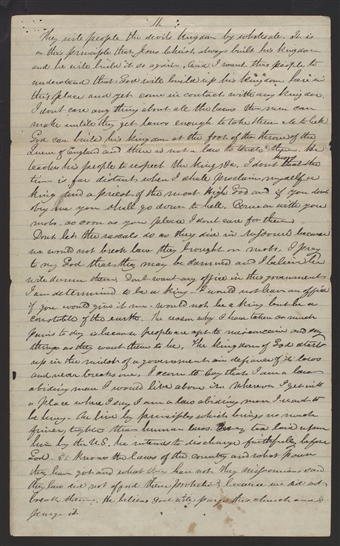 11
They will people the devils kingdom by wholesale. It is
on this principle that Jesus Christ always built his kingdom
and he will build it so again. And I want this people to
understand that God will build up his kingdom here in
this place and yet come in contact with any kingdom
I dont care any thing about all the laws the men can
make untill they get laws enough to take them all to hell
God can build his kingdom at the foot of the throne of the
Queen of England and there is not a law to them. He
teaches his people to respect the King &c. I dont think the
time is far distant when I shall proclaim myself a
king and a priest of the most High God and if you dont
obey me you shall go down to hell. Come on with your
mobs as soon as you please I dont care for them
Dont let the rascals do as they did in Missouri because
we would not break law they brought on mobs. I pray
to my God that they may be damned and I believe he
will damn them. Dont want any office in this government
I am determined to be a king. I would not have an office
if you would give it me. would not be a king but be a
constable of the earth. The reason why I have taken so much
pains to day is because people are apt to misconceive and say
things as they want them to be. The kingdom of God starts
up in the midst of a government in defiance of its laws
and never breaks one. I come to say that I am a law
abiding man I would live above law wherever I get into
a place where I say I am a law abiding man I want to
be king. We live by principles which brings us much
than human laws. Every law laid upon
him by the U.S. he intends to discharge faithfully before
God. I know the laws of the country and what power
they have got and what they have not. The Missourians said
the law did not afford them protection because we did not
break them. He believes God will purge this church and
purge it.